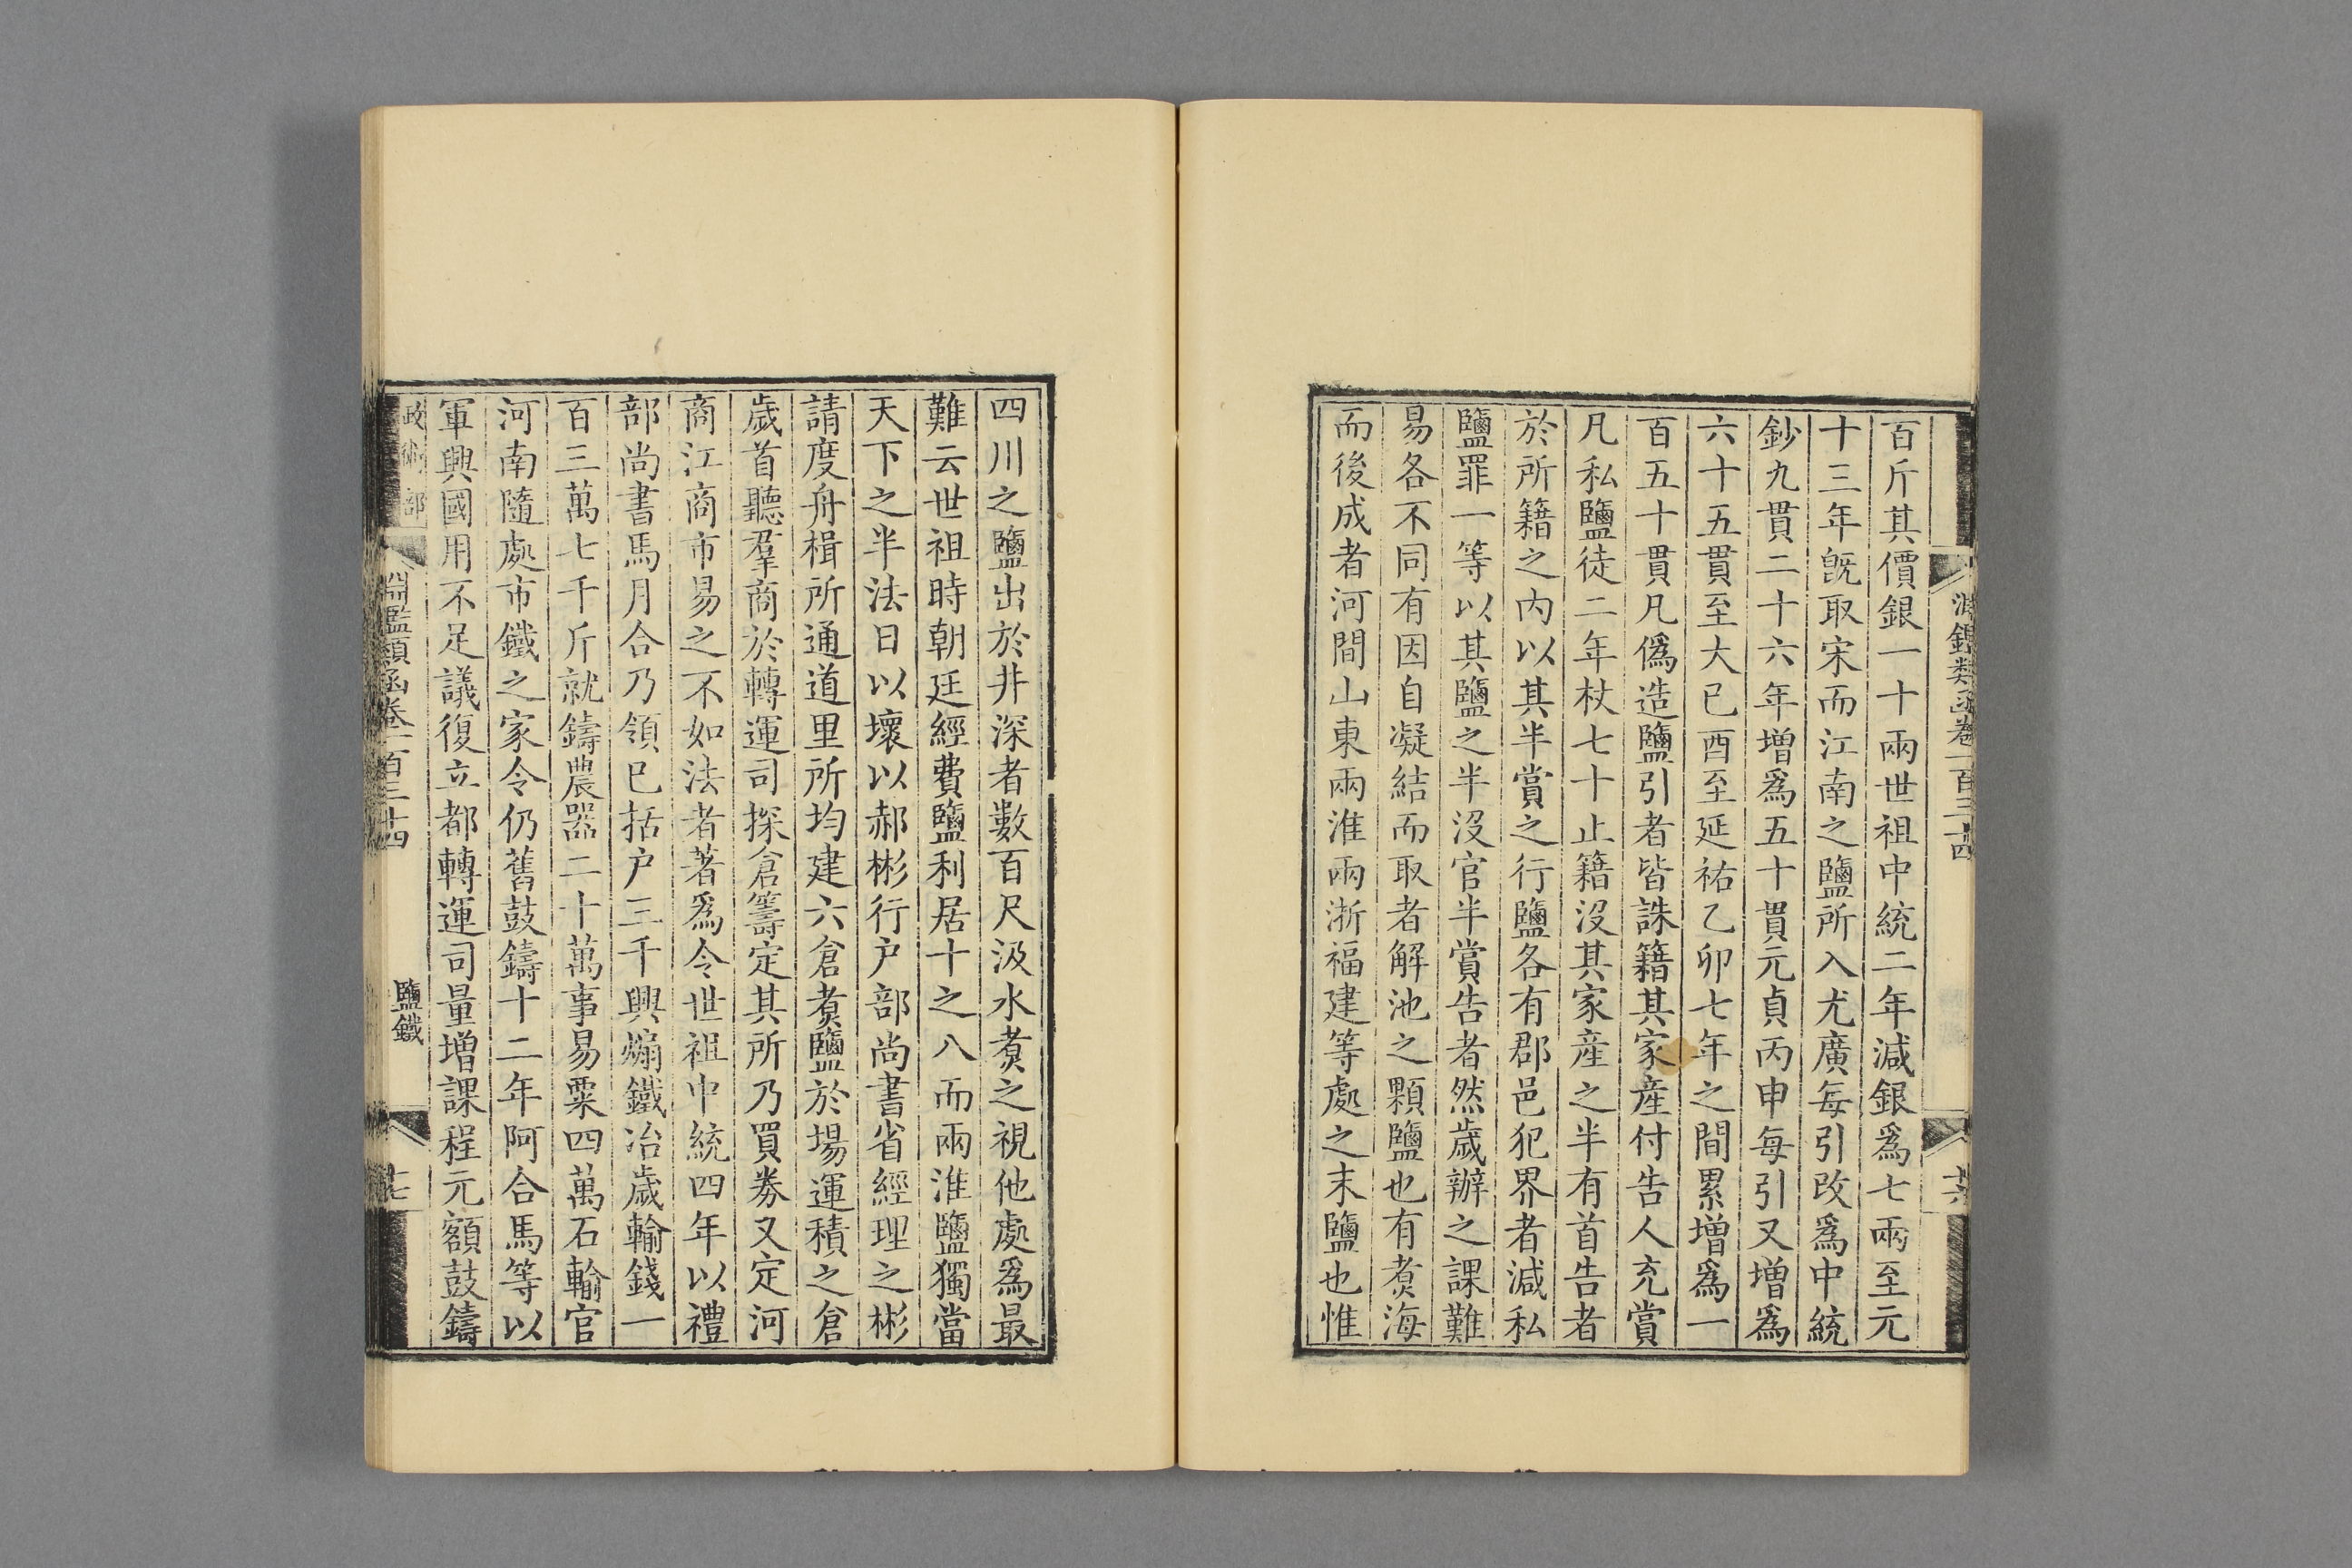 百斤其價銀一十兩世祖中統二年減銀爲七兩至元
十三年旣取宋而江南之鹽所入尤廣每引改爲中統
鈔九貫二十六年增爲五十貫元貞丙申每引又增爲
六十五貫至大已酉至延祐乙卯七年之間累增爲一
百五十貫凡僞造鹽引者皆誅籍其家産付告人充賞
凡私鹽徒二年杖七十止籍沒其家産之半有首告者
於所籍之內以其半賞之行鹽各有郡邑犯界者減私
鹽罪一等以其鹽之半沒官半賞告者然歲辦之課難
易各不同有因自凝結而取者解池之顆鹽也有煑海
而後成者河間山東兩淮兩浙福建等處之末鹽也惟
淵鑑類函卷一百三十四
十六
四川之鹽出於井深者數百尺汲水煑之視他處爲最
難云世祖時朝廷經費鹽利居十之八而兩淮鹽獨當
天下之半法日以壞以郝彬行户部尚書省經理之彬
請度舟楫所通道里所均建六倉煑鹽於場運積之倉
歲首聽羣商於轉運司探倉籌定其所乃買券又定河
商江商市易之不如法者著爲令世祖中統四年以禮
部尚書馬月合乃領已括户三千興煽鐵冶歲輸錢一
百三萬七千斤就鑄農器二十萬事易粟四萬石輸官
河南隨處市鐵之家令仍舊鼓鑄十二年阿合馬等以
軍興國用不足議復立都轉運司量增課程元額鼓鑄
政術部
淵鑑類函卷一百三十四
鹽鐵
十七